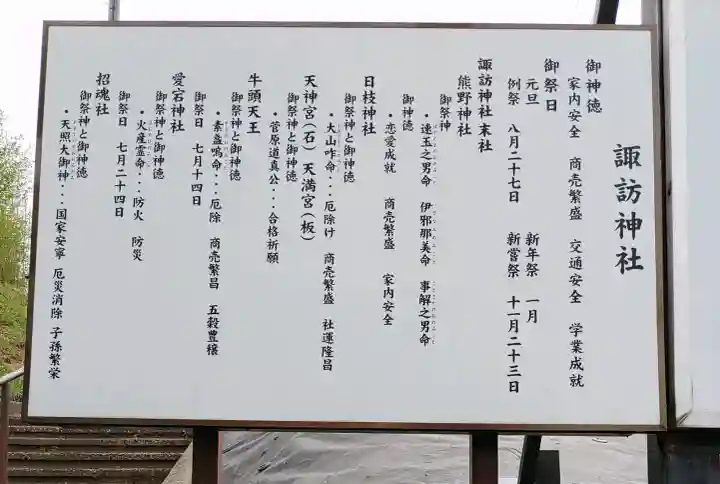 諏訪神社
御神徳
家内安全 商売繁盛 交通安全 学業成就
御祭日
元旦 新年祭 一月
例祭 八月二十七日 新嘗祭 十一月二十三日
諏訪神社 末社
熊野神社
御祭神
・速玉之男命 伊邪那美命 事解之男命
御神徳
・恋愛成就 商売繁盛 家内安全
日枝神社
御祭神と御神徳
・大山咋命・・・厄除け 商売繁盛 社運隆昌
天神宮(石) 天満宮(板)
御祭神と御神徳
・菅原道真公・・・合格祈願
牛頭天王
御祭神と御神徳
・素盞嗚命・・・厄除 商売繁昌 五穀豊穣
御祭日 七月十四日
愛宕神社
御祭神と御神徳
・火産霊命・・・防火 防災
御祭日 七月二十四日
招魂社
御祭神と御神徳
・天照大御神・・・国家安寧 厄災消除 子孫繁栄